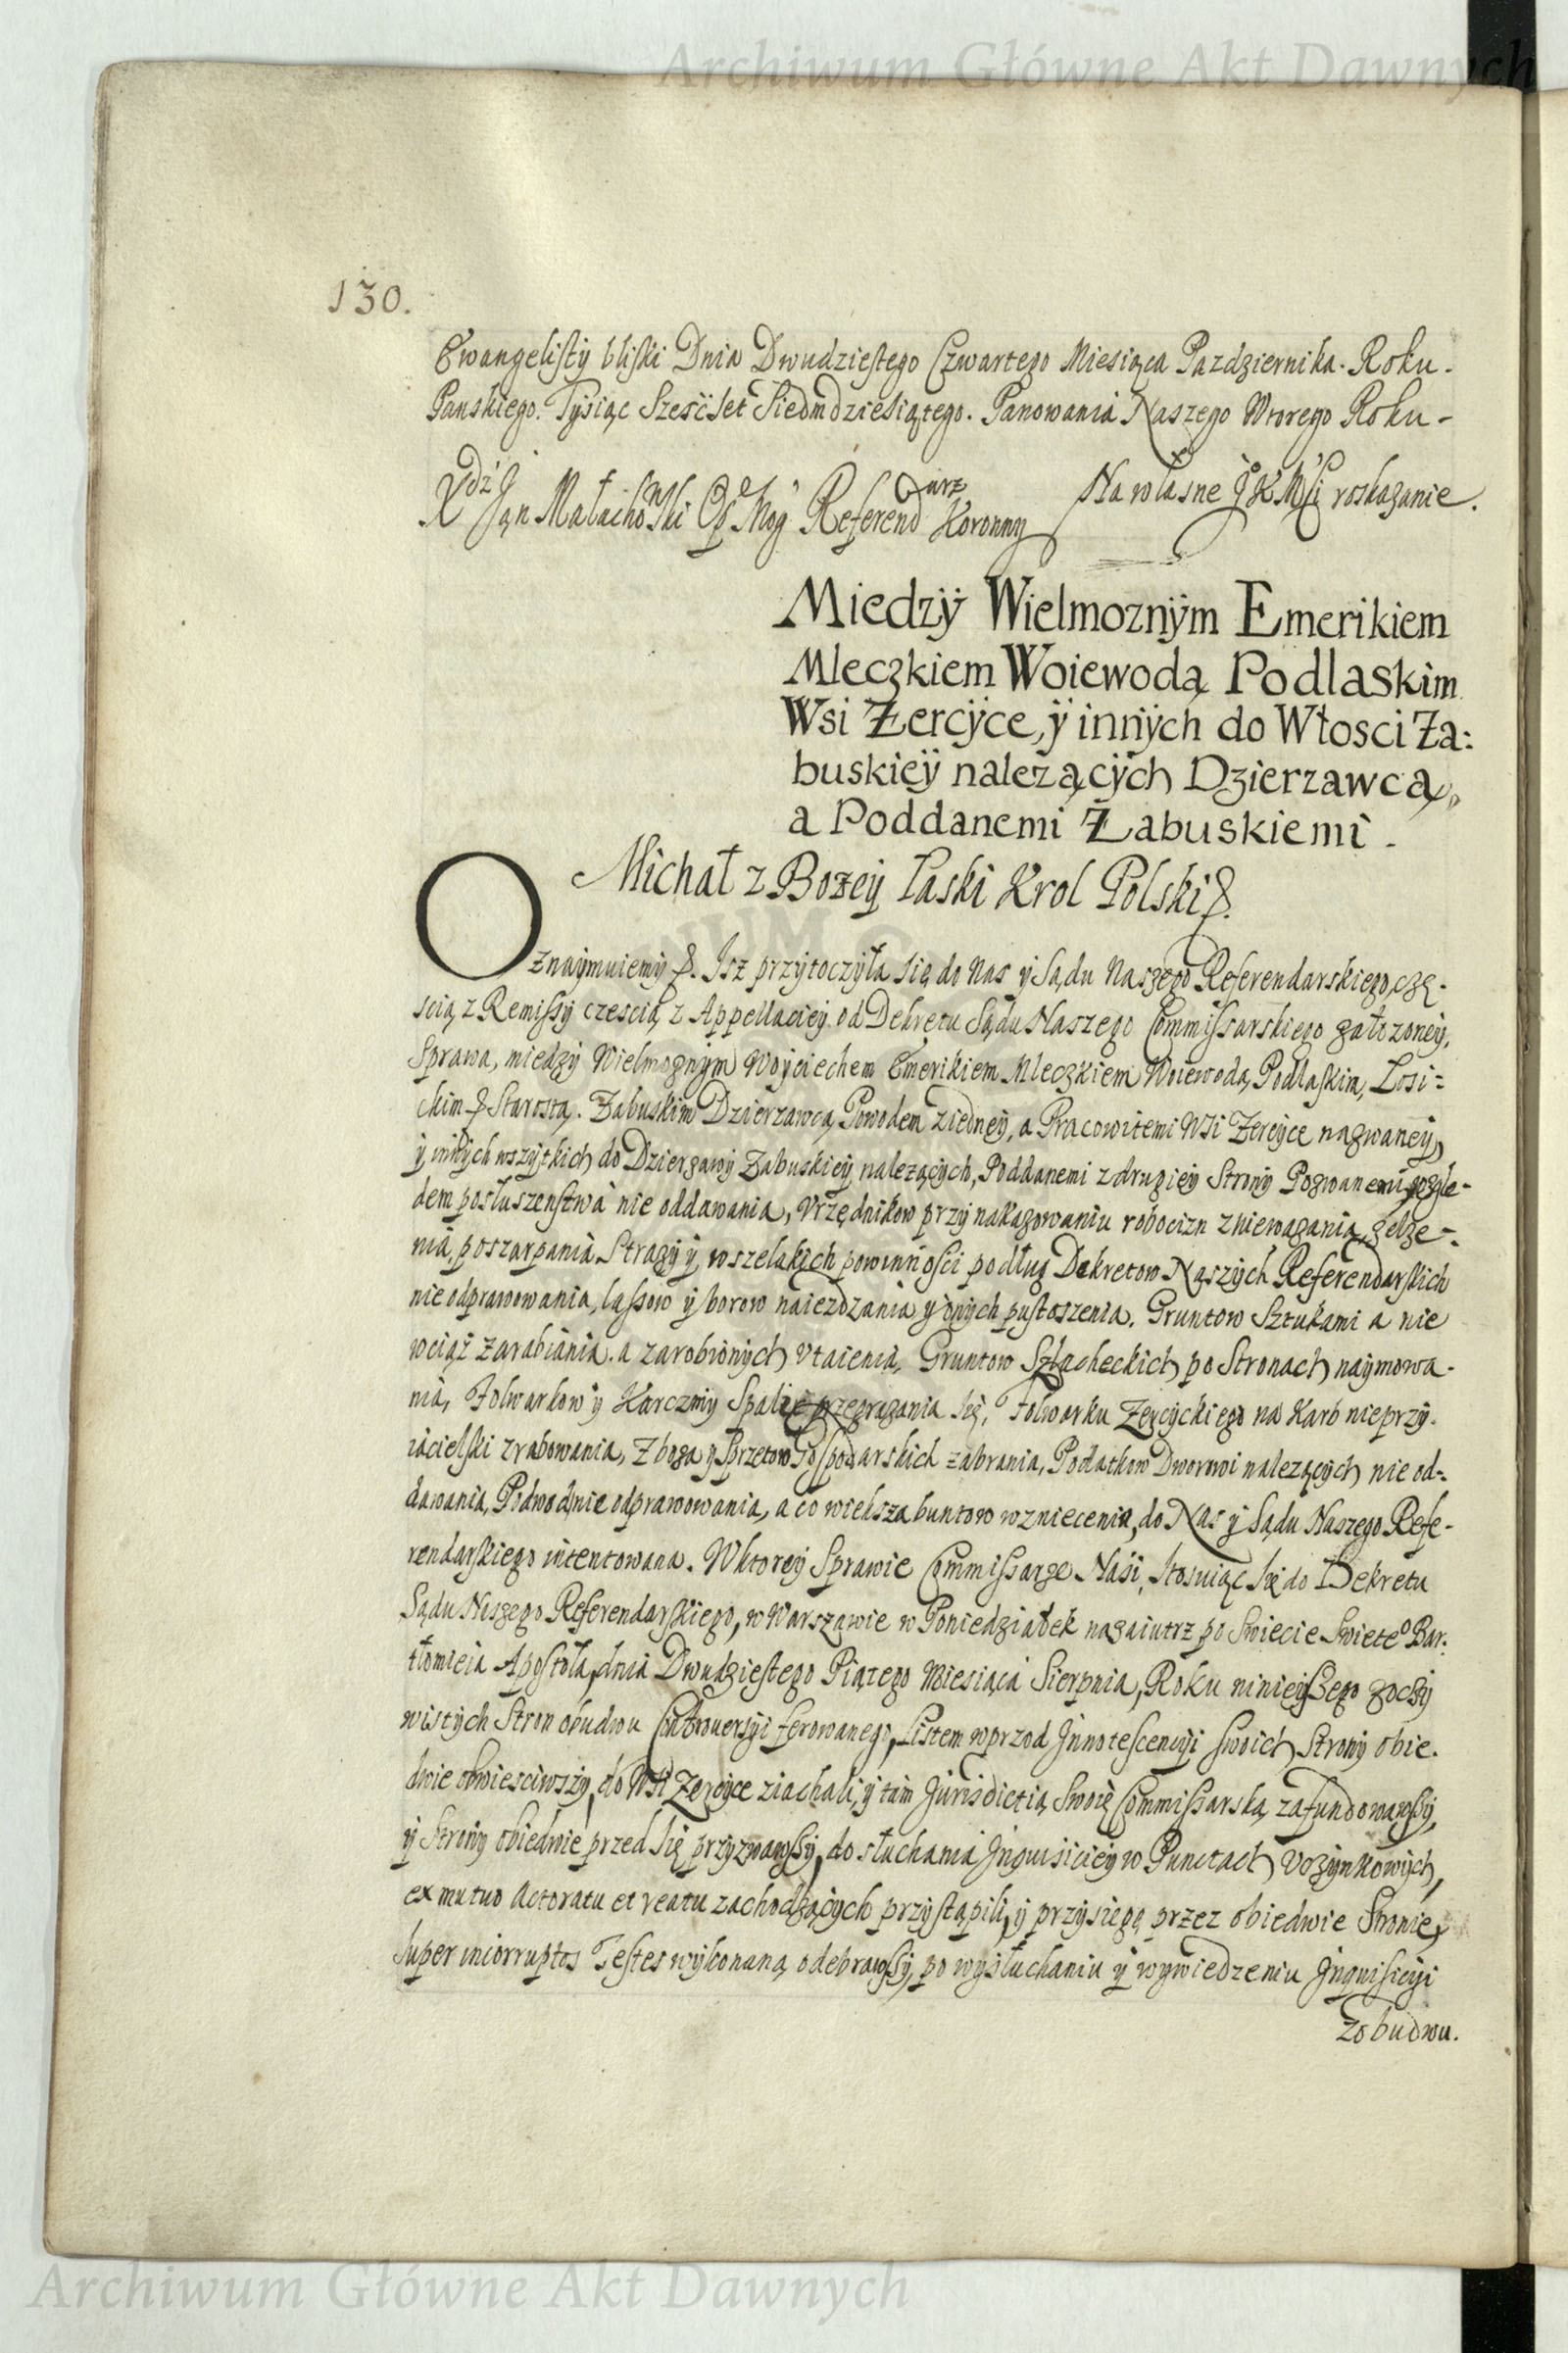 Archiwum Główne Akt Dawnych
130.
Ewangelisty bliski Dnia Dwudziestego Czwartego Miesiąca Pazdziernika. Roku.
Panskiego. Tysiąc Szescset Siedmdziesiątego. Panowania Naszego Wtorego Roku-
Xdz Jan Małachowski Op Mog Referendarz Koronny Na własne J K Msci roskazanie.
Miedzÿ Wielmoznÿm Emerikiem
Mleczkiem Woiewodą Podlaskim
Wsi Żercÿce, ÿ innÿch do Włosci Ża:
buskieÿ nalezącÿch Dzierzawcą,
a Poddanemi Żabuskiemi.
Michał z Bozey Łaski Krol Polski &.
Oznaymuiemy &. Isz przytoczyła się do nas y Sądu Naszego Referendarskiego, czę-
scią z Remissy czescią z Appellaciey od Dekretu Sądu Naszego Commissarskiego załozoney,
Sprawa, miedzy Wielmoznym Woyciechem Emerikiem Mleczkiem Woiewodą Podlaskim, Losi=
ckim & Starostą. Żabuskim Dzierzawcą Powodem z iedney, a Pracowitemi Wsi Żercyce nazwaney,
y innych wszytkich do Dzierzawy Żabuskiey nalezących, Poddanemi z drugiey Strony Pozwanemi wzglę-
dem posłuszenstwa nie oddawania, Vrzędnikow przy nakazowaniu robocizn zniewazania, zelze-
nia, poszarpania. Strazy y wszelakich powinnosci podług Dekretow Naszych Referendarskich
nie odprawowania, lassow y borow naiezdzania y onych pustoszenia. Gruntow Sztukami a nie
wciąż zarabiania. a zarobionych vtaienia, Gruntow Szlacheckich po Stronach naymowa-
nia, Folwarkow y Karczmy Spalic przegrazania się, Folwarku Zercyckiego na Karb nieprzy-
iacielski zrabowania, Zboza y Sprzetow Gospodarskich zabrania, Podatkow Dworowi nalezących nie od-
dawania, Podwod nie odprawowania, a co wieksza buntow wzniecenia, do Nas y Sądu Naszego Refe-
rendarskiego intentowana. W ktorey Sprawie Commissarze Nasi, stosuiąc się do Dekretu
Sądu Naszego Referendarskiego, w Warszawie w Poniedziałek nazaiutrz po Swiecie Swieteo Bar:
tłomieia Apostoła, dnia Dwudziestego Piątego Miesiąca Sierpnia, Roku ninieyszego z oczy
wistych Stron obudwu Controuersyi ferowanego, Listem wprzod Innotescencyi swoich Strony obie.
dwie obwiesciwszy, do Wsi Zercyce ziachali, y tam Jurisdictią Swoię Commissarską zafundowawszy,
y Strony obiedwie przed się przyzwawszy, do słuchania Inquisiciey w Punctach Vczynkowych,
ex mutuo Actoratu et reatu zachodzących przystąpili, y przysięgę przez obiedwie Stronie,
super incorruptos Testes wykonaną odebrawszy, po wysłuchaniu y wywiedzeniu Inquisicyi
z obudwu.
Archiwum Główne Akt Dawnych